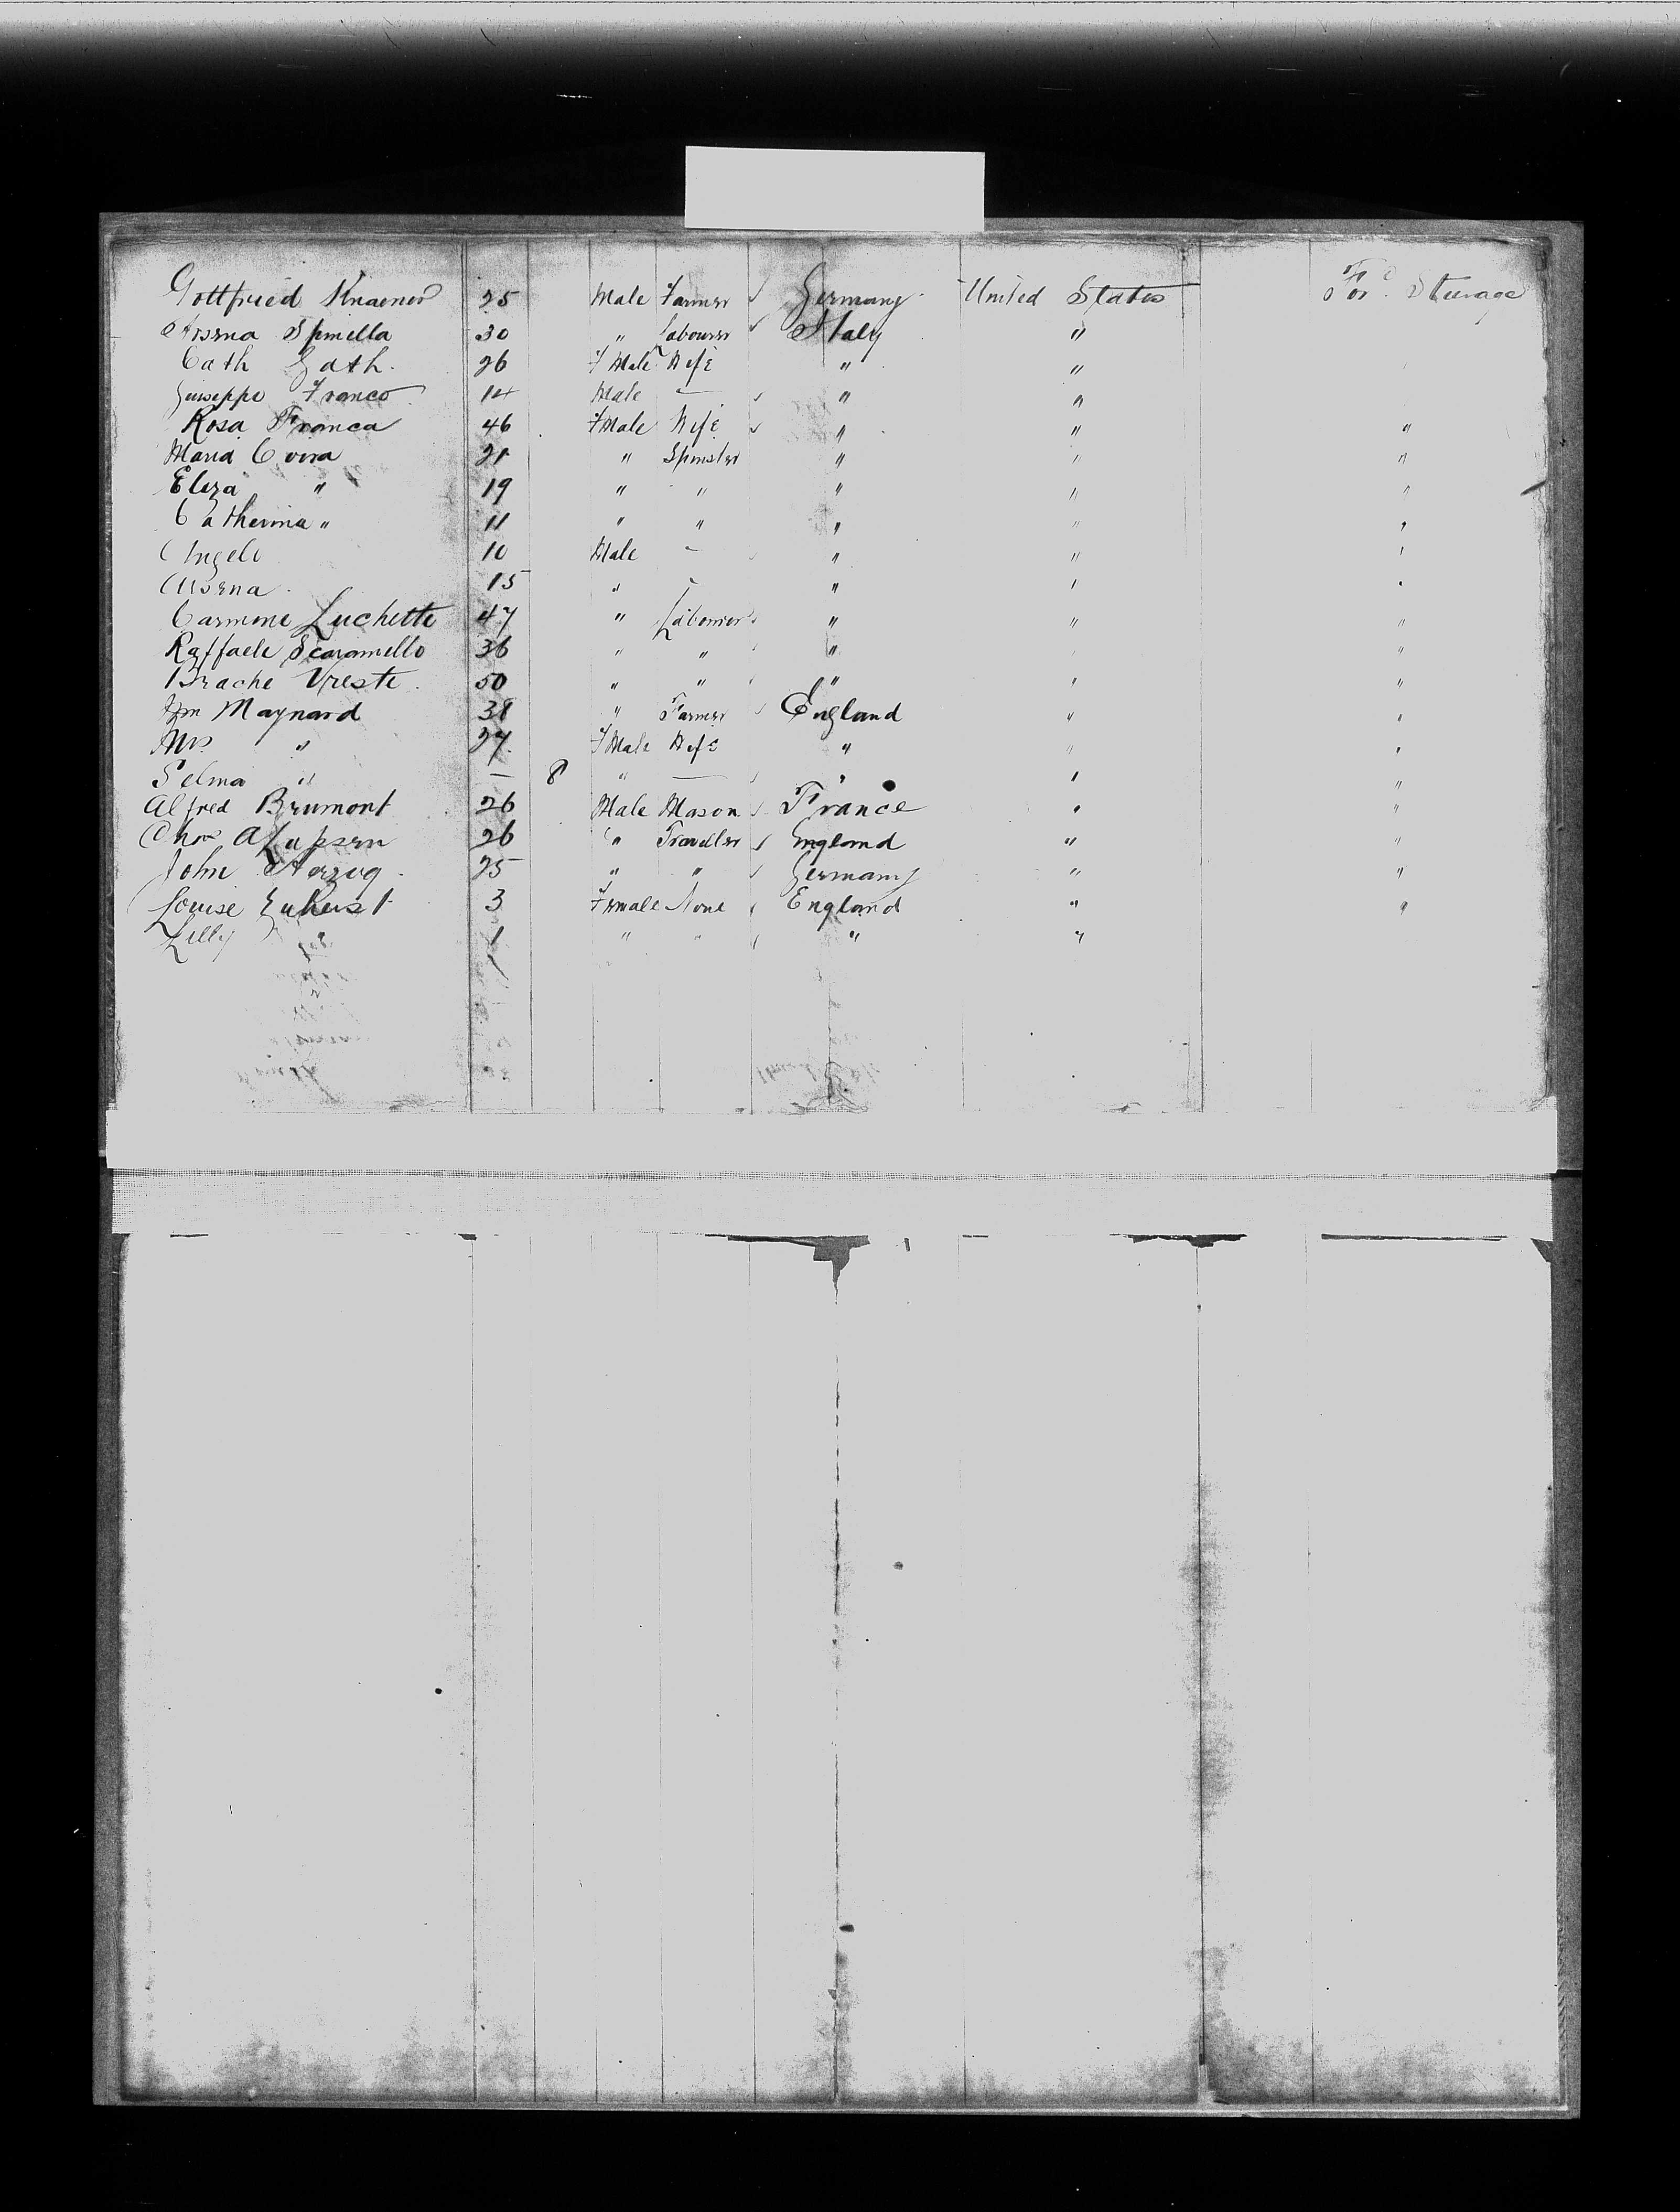 Gottfried 25 Male Farmer Germany United States For'd Steerage
Spinella 30 " Labourer Italy "
Cath 26 F Male Wife " "
Giuseppe Franco 14 Male — " "
Rosa Franca 46 F Male Wife " " "
Maria 21 " Spinster " " "
Eliza " 19 " " " " "
Catherina " 11 " " " " "
Angelo 10 Male - " " "
15 " - " " "
Carmine Luchette 47 " Labourer " " "
Raffaele Scaramello 36 " " " " "
Brache Vreste 50 " " " " "
Maynard 38 " Farmer England " "
Mrs " 27 F Male Wife " " "
Selma " — 8 " — " " "
Alfred Brumont 26 Male Mason France " "
Chas A 26 " Traveller England " "
John Herzog 25 " " Germany " "
Louise 3 Female None England " "
Lilly " 1 " " " "